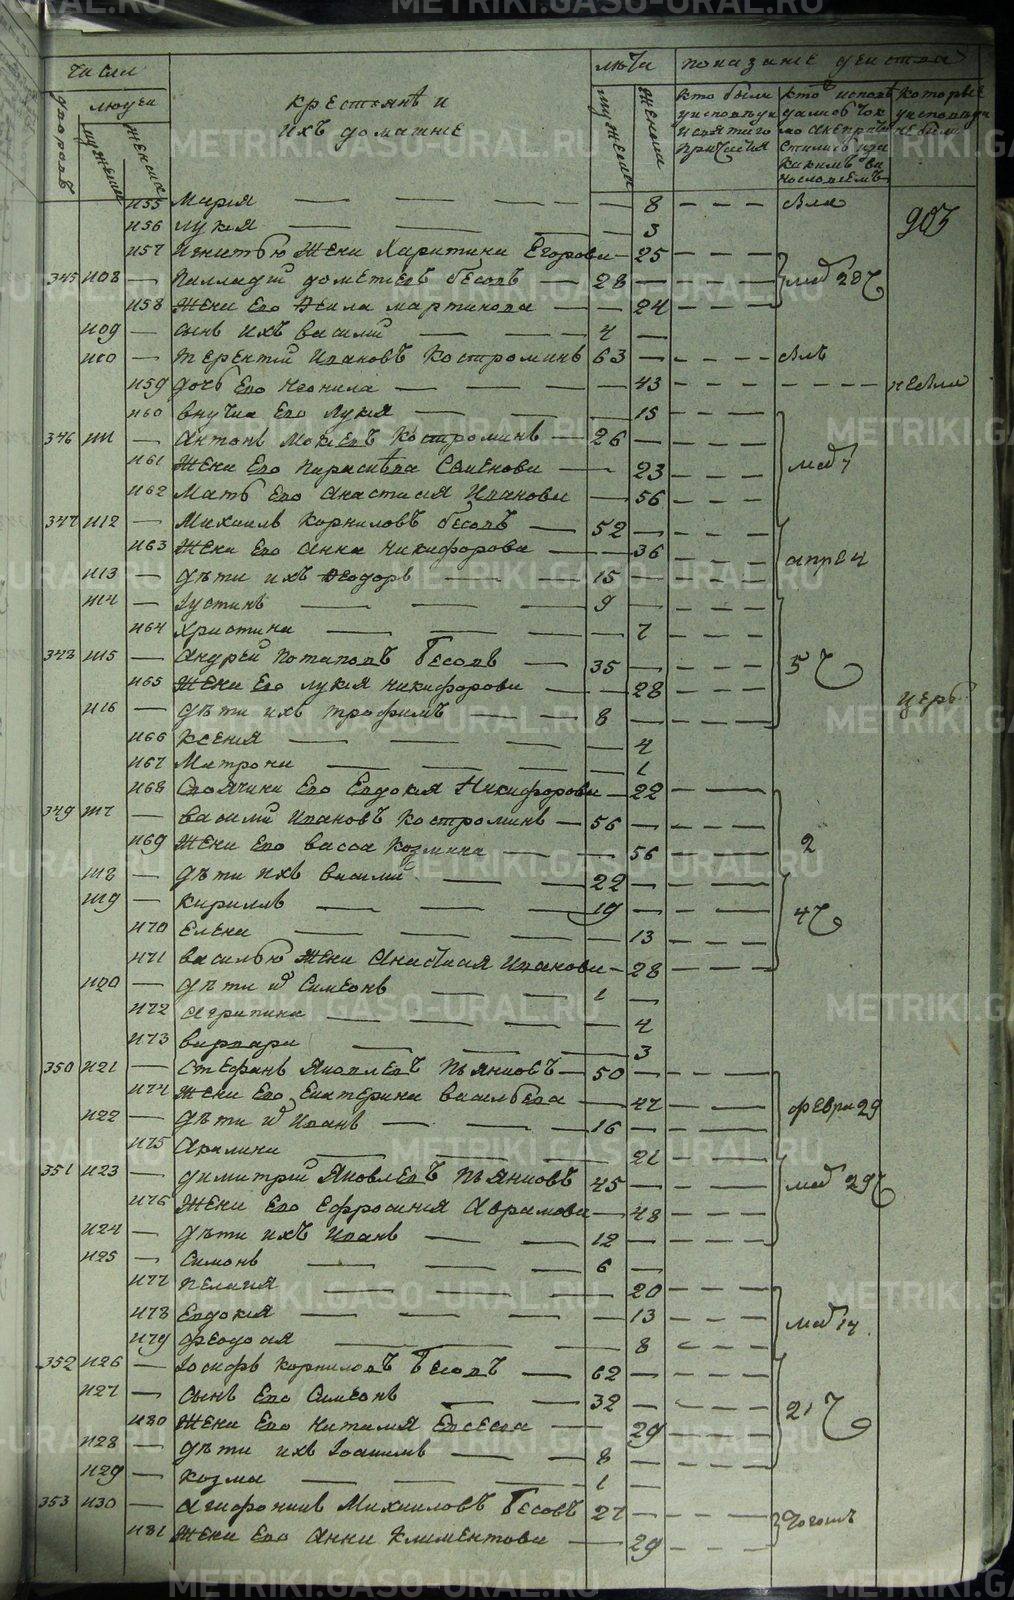 METRIKI.GASO-URAL.RU
числа
лѣта показанiе действа
дворовъ людей мужеска женска
крестьянѣ и
ихъ домашнiе
мужеска женска
кто были у исповѣди и святаго причастiя
которые у исповѣди не были
1155 Марiя 8 Бля
903
1156 Лукiя 3
1157 Игнатью жена Харитина Егорова 25
345 1108 Палладiй Дометiевъ Бесовъ 28 маб 28
1158 Жена Его Мартинова 24
1109 Сынъ ихъ Василiй 4
1110 Терентiй Ивановъ Костроминъ 63
1159 Дочь Его Неонила 43 не бла
1160 Внучка Его Лукiя 15
346 1111 Антонъ Моисеевъ Костроминъ 26
1161 Жена Его Параскѣва Семенова 23
1162 Мать Его Анастасiя Иванова 56
347 1112 Михаилъ Корниловъ Бесовъ 52
1163 Жена Его Анна Никифорова 36 апре 4
1113 Дѣти ихъ Феодоръ 15
1114 Iустинъ 9
1164 Христина 7
348 1115 Андрей Потаповъ Бесовъ 35 5
1165 Жена Его Лукiя Никифорова 28
церб
1116 Дѣти ихъ Трофимъ 8
1166 Ксенiя 4
1167 Матрона 1
1168 Своячина Его Евдокiя Никифорова 22
349 1117 Василiй Ивановъ Костроминъ 56
1169 Жена Его Васса Козмина 56 2
1118 Дѣти ихъ Василiй 22
1119 Кириллъ 19 4
1170 Елена 13
1171 Василью жена Анастасiя Иванова 28
1120 Дѣти Симеонъ 1
1172 Агрипина 4
1173 Варвара 3
350 1121 Стефанъ Яковлевъ Пьянковъ 50
1174 Жена Его Екатерина Васильева 47 февра 29
1122 Дѣти Иванъ 16
1175 Акилина 21
351 1123 Димитрiй Яковлевъ Пьянковъ 45 маб 29
1176 Жена Его Ефросинiя Аврамова 48
1124 Дѣти ихъ Иванъ 12
1125 Симонъ 6
1177 Пелагiя 20
1178 Евдокiя 13
1179 Феодосiя 8
352 1126 Iосифъ Корниловъ Бесовъ 62
1127 Сынъ Его Симеонъ 32 21
1180 Жена Его Наталiя Евсеева 29
1128 Дѣти ихъ Iоакимъ 8
1129 Козма 1
353 1130 Агафоникъ Михаиловъ Бесовъ 27
1181 Жена Его Анна Климентова 29